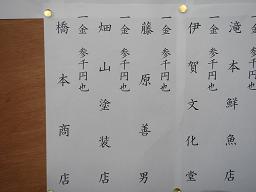 一金 参千円也
滝本鮮魚店
一金 参千円也
伊賀文化堂
一金 参千円也
藤原善男
一金 参千円也
畑山塗装店
一金 参千円也
橋本商店